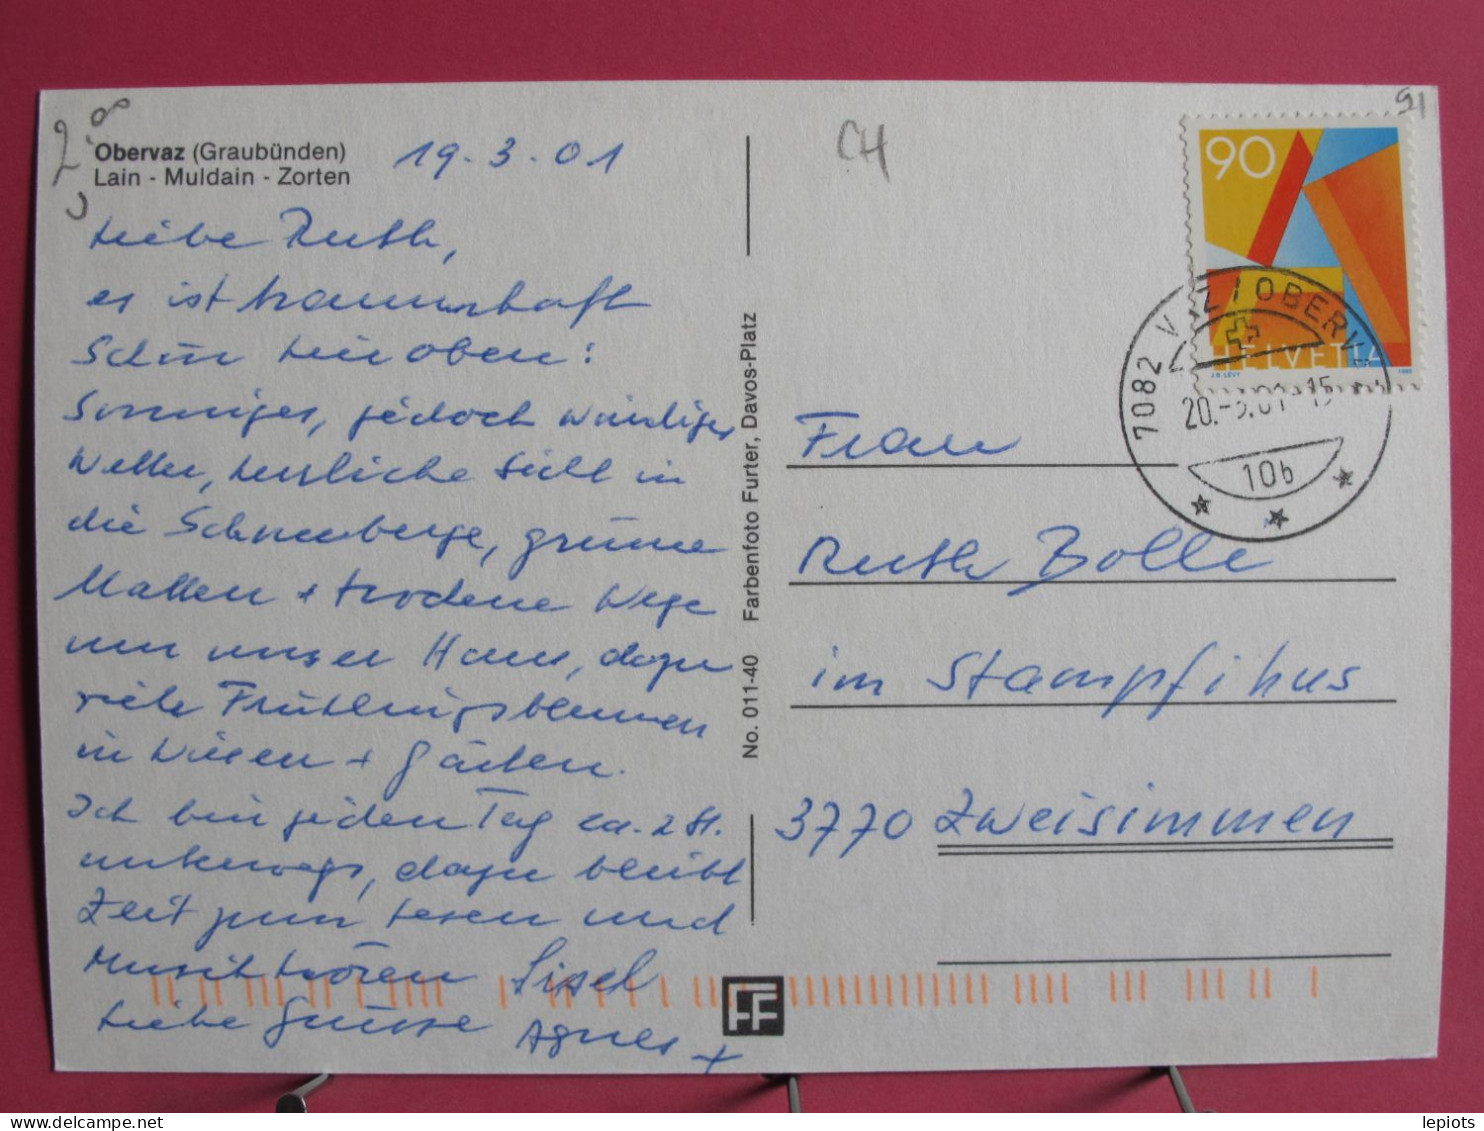 Obervaz (Graubünden)
Lain - Muldain - Zorten
19.3.01
Liebe Ruth,
es ist traumhaft
schön hier oben:
Sonniges, jedoch windiges
Wetter, herrliche Sicht in
die Schneeberge, grüne
Matten + trockene Wege
um unser Haus, dazu
viele Frühlingsblumen
in Wiesen + Gärten.
Ich bin jeden Tag ca. 2 St.
unterwegs, dazu bleibt
Zeit zum Lesen und
Musik hören
Liebe Grüsse
Sisel
Agnes +
No. 011-40 Farbenfoto Furter, Davos-Platz
FF
CH
91
90
HELVETIA
J.B. LÉVY 1995
7082 VAZ/OBERVAZ
20.-3.01-15
10b
Frau
Ruth Bolle
im Stampfihus
3770 Zweisimmen
lepiots